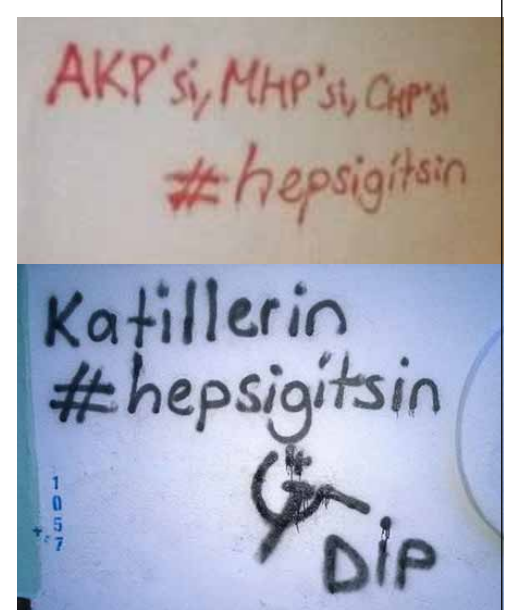 AKP'si, MHP'si, CHP'si
#hepsigitsin
Katillerin
#hepsigitsin
DİP
1
0
5
7